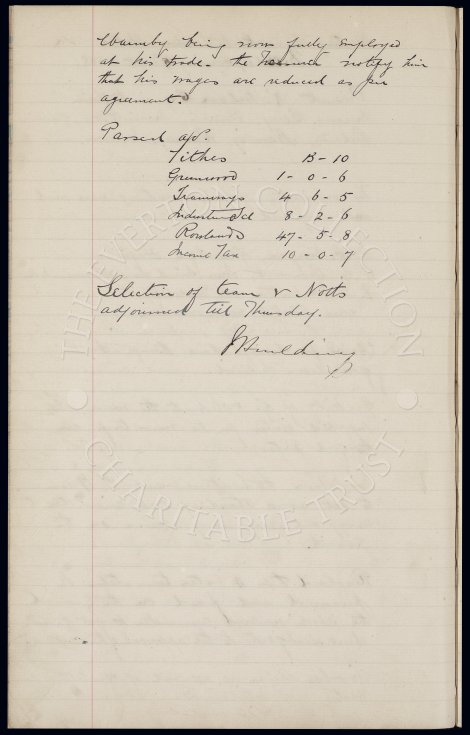 Warmby being now fully employed
at his trade. the Treasurer notify him
that his wages are reduced as per
agreement.
Passed a/cs.
Tithes 13 - 10
Greenwood 1 - 0 - 6
Tramways 4 6 - 5
Industrial Scl 8 - 2 - 6
Rowlands 47 - 5 - 8
Income Tax 10 - 0 - 7
Selection of team v Notts
adjourned till Thursday.
J Houlding
THE EVERTON COLLECTION
CHARITABLE TRUST